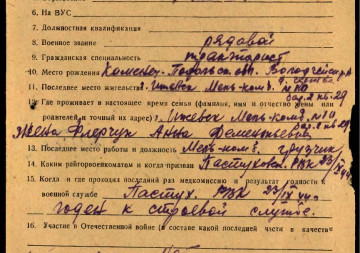 6. На ВУС
7. Должностная квалификация
8. Военное звание рядовой
9. Гражданская специальность тракторист
10. Место рождения Каменец-Подольск. обл.
11. Последнее место жительства г. Ижевск
12. Где проживает в настоящее время семья (фамилия, имя и отчество жены или
родителей и точный их адрес) г. Ижевск
жена Анна Дементьевна
13. Последнее место работы и должность грузчик
14. Каким райгорвоенкоматом и когда призван Пастухов. РВК
15. Когда и где проходил последний раз медкомиссию и результат годности к
военной службе Пастух. РВК 23/IX 44 г.
годен к строевой службе.
16. Участие в Отечественной войне (в составе какой последней части в качестве